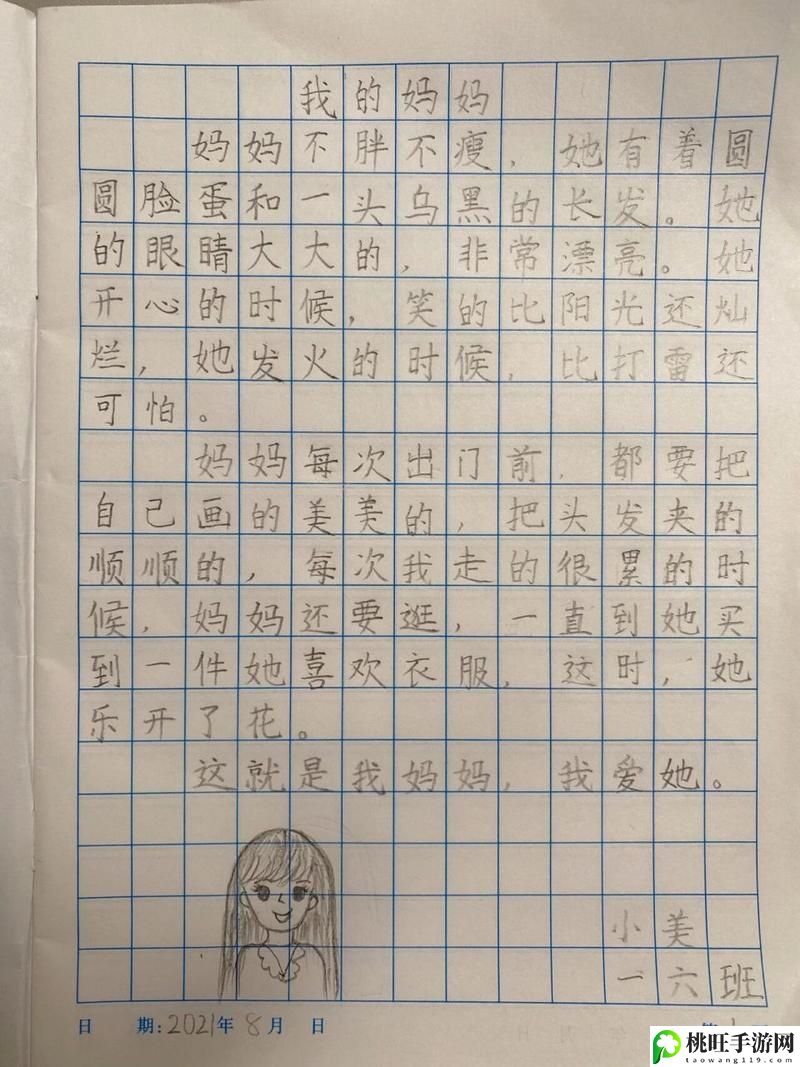 我的妈妈
妈妈不胖不瘦，她有着圆
圆脸蛋和一头乌黑的长发。她
的眼睛大大的，非常漂亮。她
开心的时候，笑的比阳光还灿
烂，她发火的时候，比打雷还
可怕。
妈妈每次出门前，都要把
自己画的美美的，把头发夹的
顺顺的，每次我走的很累的时
候，妈妈还要逛，一直到她买
到一件她喜欢衣服，这时，她
乐开了花。
这就是我妈妈，我爱她。
小美
一六班
日 期：2021年8月 日
桃旺手游网
taowang119.com